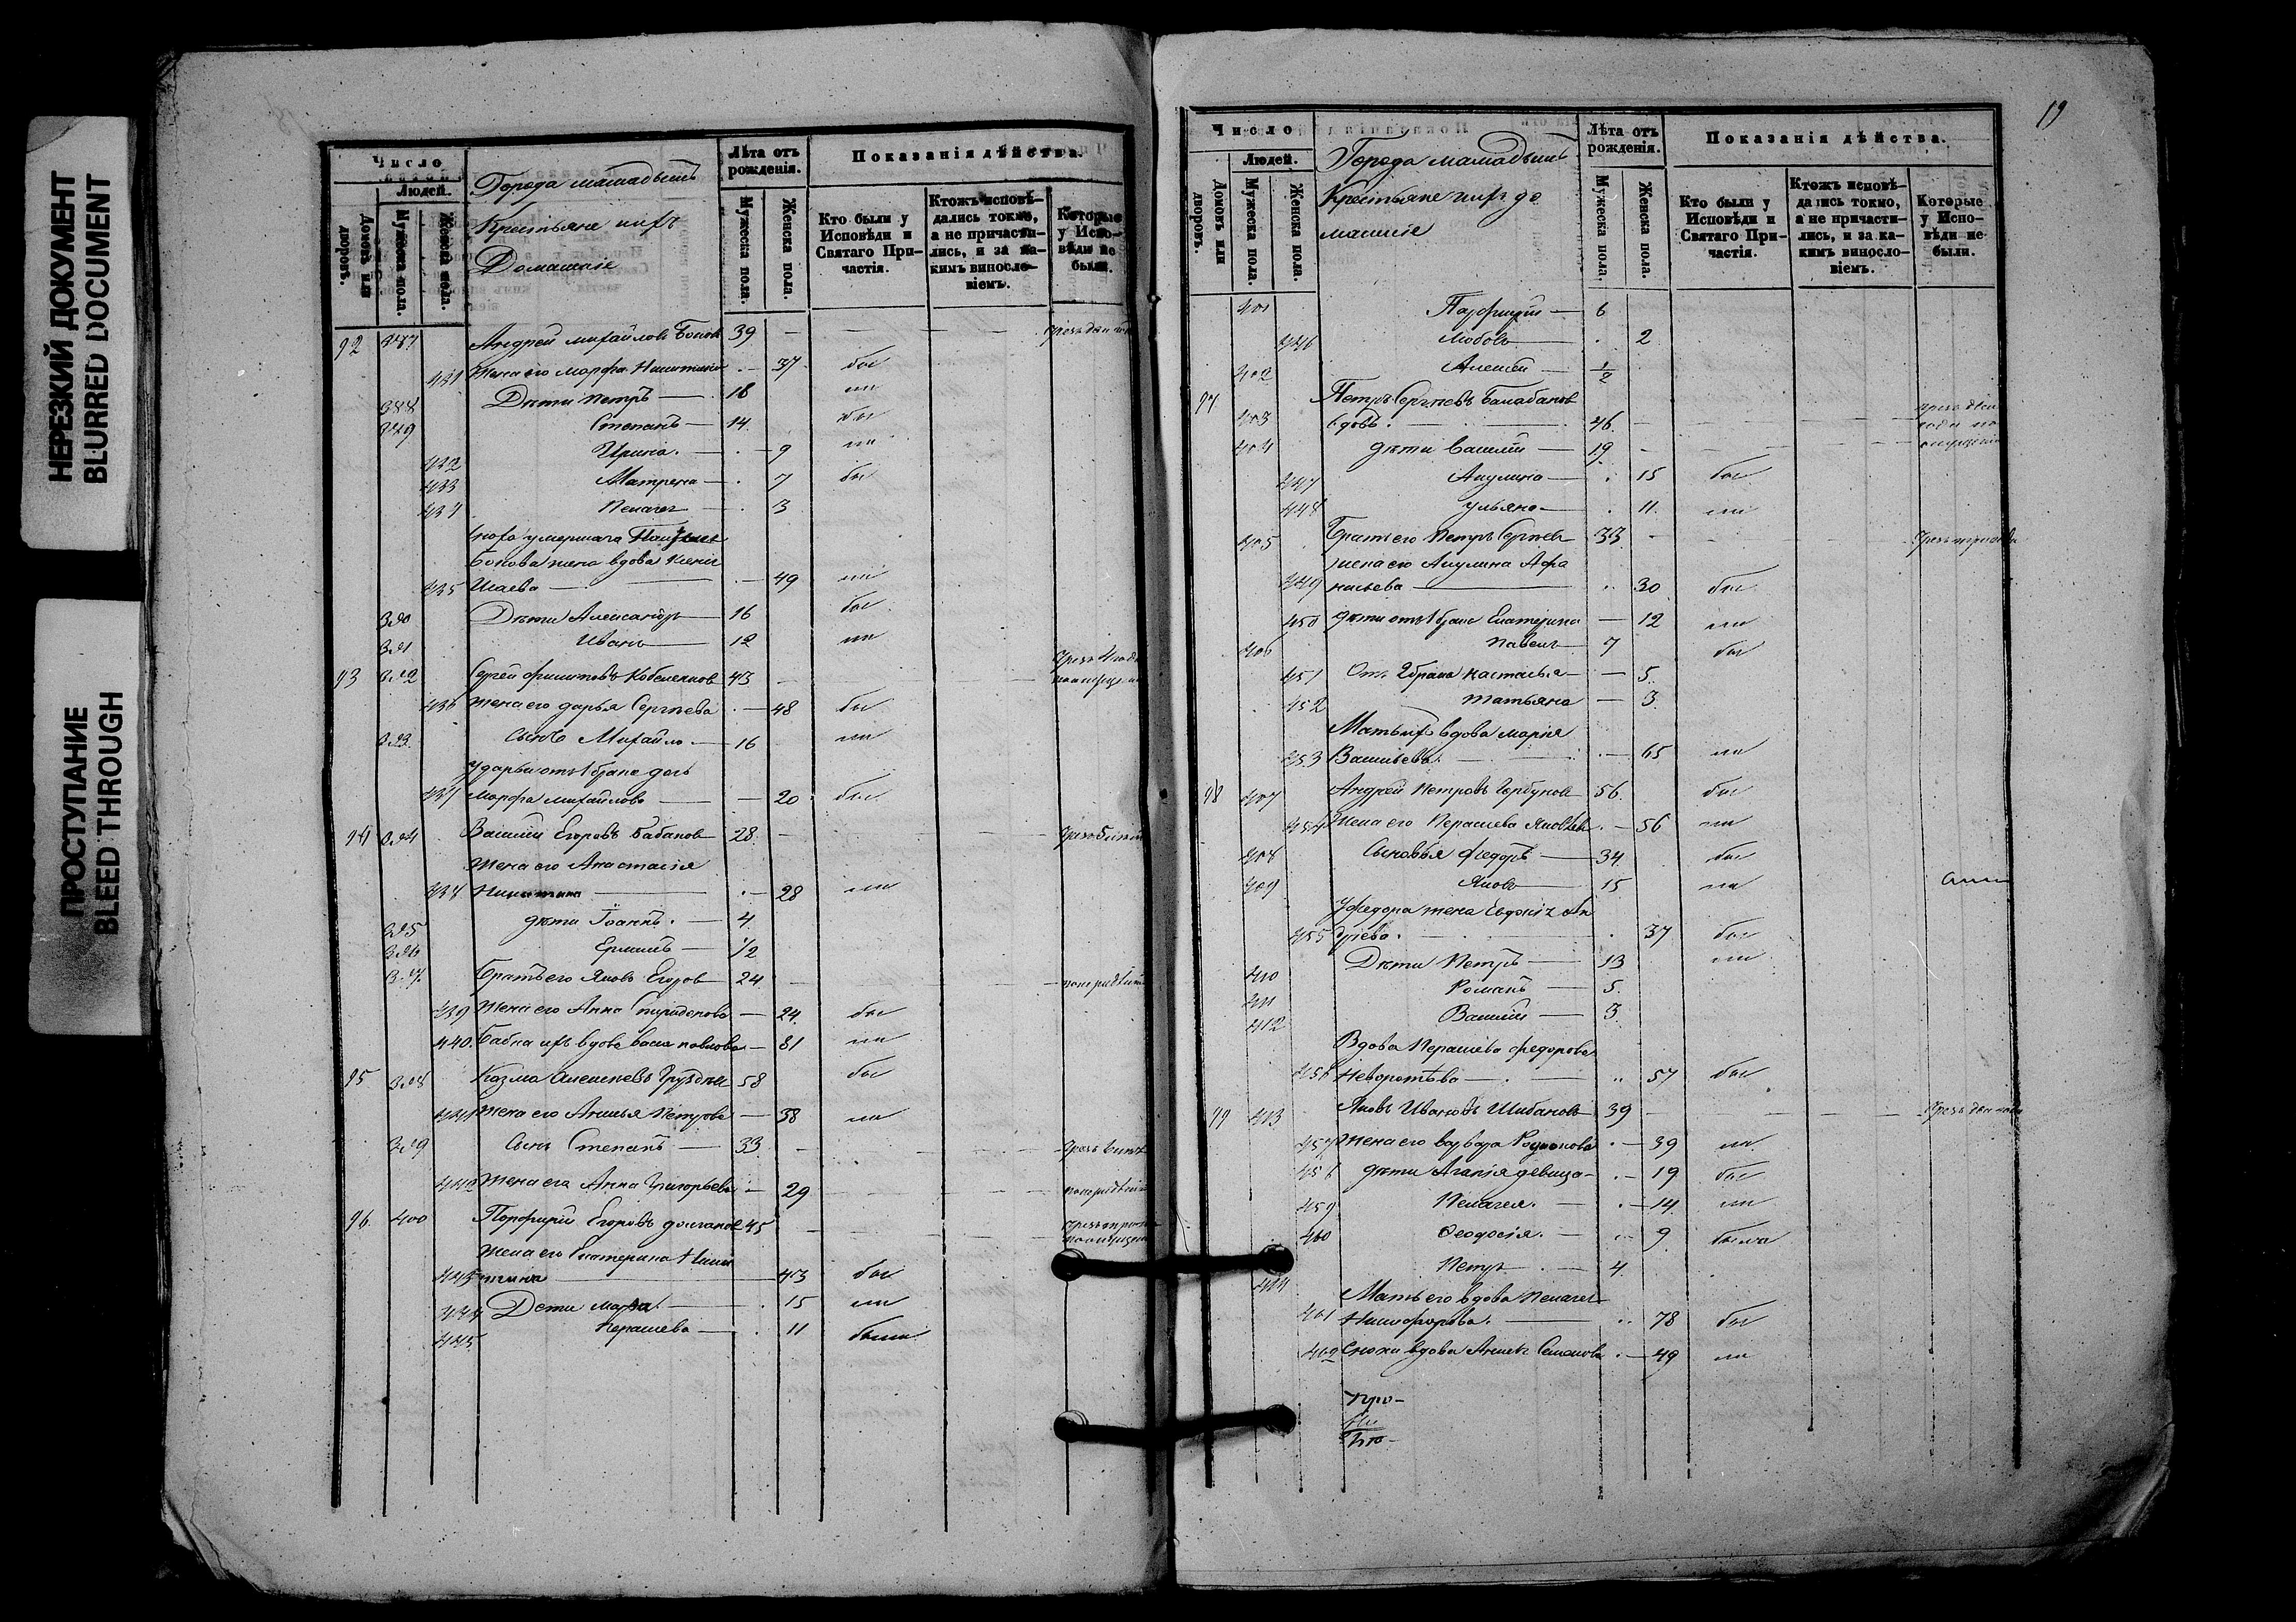 НЕРЕЗКИЙ ДОКУМЕНТ
BLURRED DOCUMENT
ПРОСТУПАНИЕ
BLEED THROUGH
Число
Людей.
Домовъ или дворовъ.
Мужеска пола.
Женска пола.
Города мамадышъ
Крестьяне ихъ
Домашніе
Лѣта отъ рожденія.
Мужеска пола.
Женска пола.
Показанія дѣйства.
Кто были у Исповѣди и Святаго Причастія.
Ктожъ исповѣдались токмо, а не причастились, и за какимъ винословіемъ.
Которые у Исповѣди не были.
92 387 Андрей михайловъ 39
431 Жена его марфа Никитина 37 был
388 Дѣти петръ 18 ли
389 Степанъ 14 был
432 Ирина 9 ли
433 Матрена 7 был
434 Пелагея 3
вдова
435 Исаева 49 ли
390 Дѣти Александръ 16 был
391 Иванъ 12 ли
93 392 Сергей филиповъ 43
436 Жена его дарья Сергѣева 48 был
393 сынъ Михайло 16 ли
У дарьи отъ 1 брака дочь
437 марфа михайлова 20 был
94 394 Василий Егоровъ Бабанов 28
Жена его Анастасія
438 Никитина 28 ли
395 дѣти Іоаннъ 4
396 1/2
397 Братъ его Яковъ Егоров 24
439 Жена его Анна Спиридонова 24 был
440 Бабка ихъ вдова павлова 81 ли
95 398 Козма Алексѣевъ 58 был
441 Жена его Петрова 38 ли
399 Сынъ Степанъ 33
442 Жена его Анна Григорьева 29
96 400 Порфирій Егоровъ 45
Жена его Екатерина Ники
443 тина 43 был
444 Дети 15 ли
445 Параскева 11 были
19
Число
Людей.
Домовъ или дворовъ.
Мужеска пола.
Женска пола.
Города мамадышъ
Крестьяне ихъ до
машніе
Лѣта отъ рожденія.
Мужеска пола.
Женска пола.
Показанія дѣйства.
Кто были у Исповѣди и Святаго Причастія.
Ктожъ исповѣдались токмо, а не причастились, и за какимъ винословіемъ.
Которые у Исповѣди не были.
401 Парфирій 6
446 Любовь 2
402 Алексей 1/2
97 Петръ Сергѣевъ Балабанов
403 вдовъ 46
404 дѣти василий 19
447 Акулина 15 был
448 ульяна 11 ли
405 Братъ его Петръ Сергѣев 33
жена его Акулина Афа
449 насьева 30 был
450 дѣти отъ 1 брака Екатерина 12 ли
406 павелъ 7 был
451 Отъ 2 брака настасья 5
452 татьяна 3
Мать ихъ вдова марія
453 Васильева 65 ли
98 407 Андрей петровъ Горбунов 56 был
454 Жена его Параскева Яковлева 56 ли
408 Сыновья Федоръ 34 был
409 Яковъ 15 ли
У федора жена Евдокія Ан
455 дреева 37 был
410 Дѣти Петръ 13 ли
411 Романъ 5
412 Василий 3
Вдова Параскева федорова
456 57 был
99 413 Яковъ Ивановъ Шибановъ 39
457 Жена его варвара Родионова 39 ли
458 дѣти Агапія девица 19 был
459 Пелагея 14 ли
460 Феодосія 9 была
414 Петръ 4
Мать его вдова Пелагея
461 Никифорова 78 был
462 Сноха вдова 49 ли